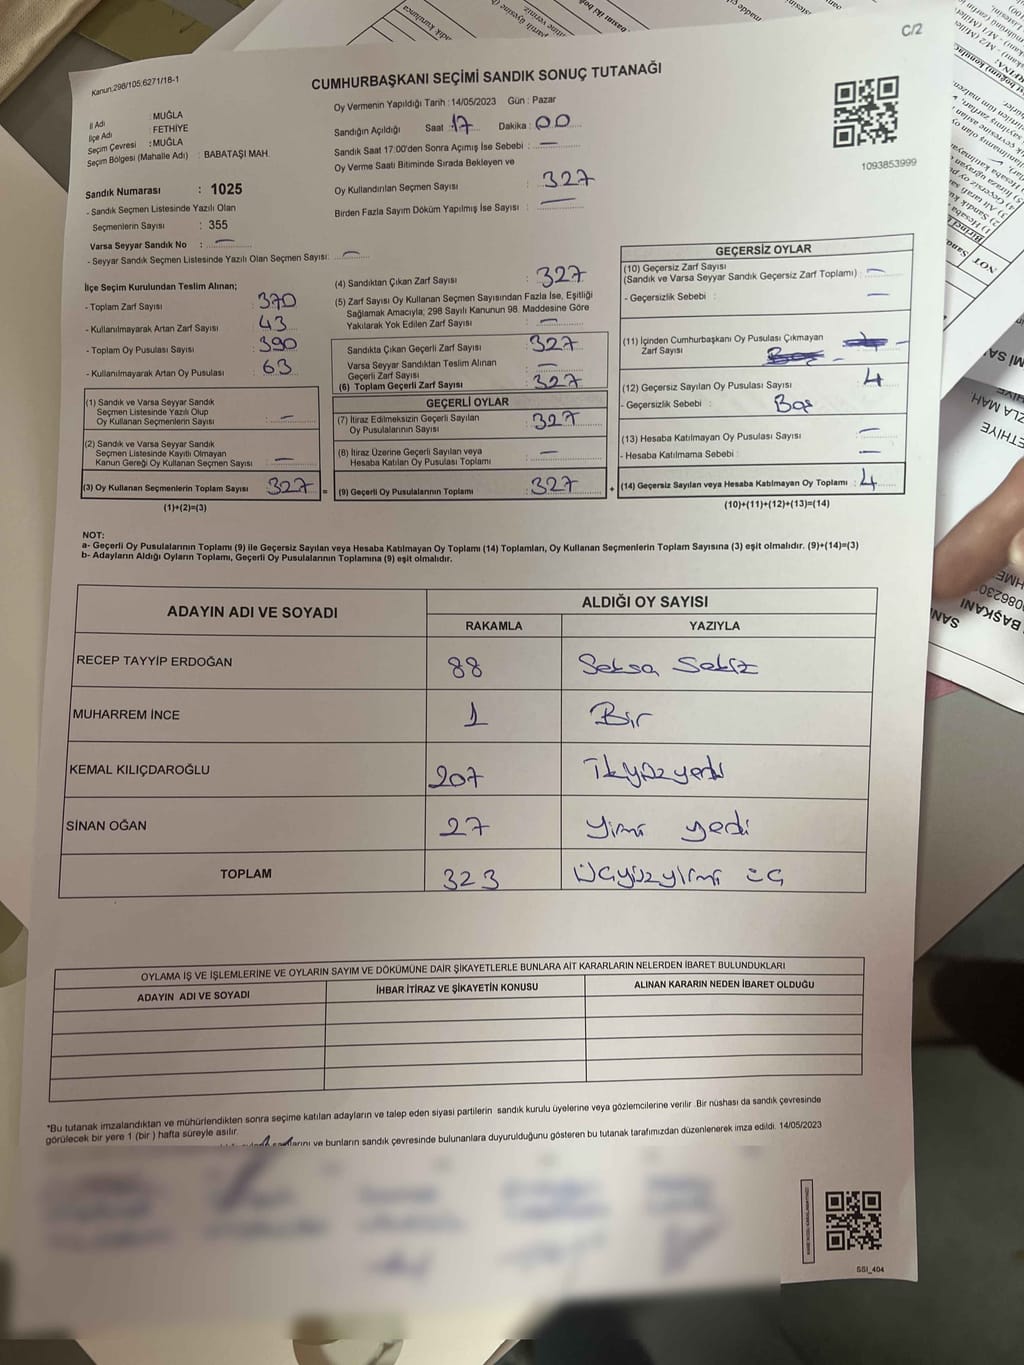 C/2
Kanun:298/105,6271/18-1
CUMHURBAŞKANI SEÇİMİ SANDIK SONUÇ TUTANAĞI
İl Adı : MUĞLA
İlçe Adı : FETHİYE
Seçim Çevresi : MUĞLA
Seçim Bölgesi (Mahalle Adı) : BABATAŞI MAH.
Sandık Numarası : 1025
- Sandık Seçmen Listesinde Yazılı Olan
Seçmenlerin Sayısı : 355
Varsa Seyyar Sandık No : —
- Seyyar Sandık Seçmen Listesinde Yazılı Olan Seçmen Sayısı: —
Oy Vermenin Yapıldığı Tarih : 14/05/2023 Gün : Pazar
Sandığın Açıldığı Saat : 17 Dakika : 00
Sandık Saat 17:00'den Sonra Açımış İse Sebebi : —
Oy Verme Saati Bitiminde Sırada Bekleyen ve
Oy Kullandırılan Seçmen Sayısı : 327
Birden Fazla Sayım Döküm Yapılmış İse Sayısı : —
1093853999
İlçe Seçim Kurulundan Teslim Alınan;
- Toplam Zarf Sayısı : 370
- Kullanılmayarak Artan Zarf Sayısı : 43
- Toplam Oy Pusulası Sayısı : 390
- Kullanılmayarak Artan Oy Pusulası : 63
(1) Sandık ve Varsa Seyyar Sandık
Seçmen Listesinde Yazılı Olup
Oy Kullanan Seçmenlerin Sayısı : —
(2) Sandık ve Varsa Seyyar Sandık
Seçmen Listesinde Kayıtlı Olmayan
Kanun Gereği Oy Kullanan Seçmen Sayısı : —
(3) Oy Kullanan Seçmenlerin Toplam Sayısı 327 =
(1)+(2)=(3)
(4) Sandıktan Çıkan Zarf Sayısı : 327
(5) Zarf Sayısı Oy Kullanan Seçmen Sayısından Fazla İse, Eşitliği
Sağlamak Amacıyla, 298 Sayılı Kanunun 98. Maddesine Göre
Yakılarak Yok Edilen Zarf Sayısı : —
Sandıkta Çıkan Geçerli Zarf Sayısı : 327
Varsa Seyyar Sandıktan Teslim Alınan
Geçerli Zarf Sayısı : —
(6) Toplam Geçerli Zarf Sayısı : 327
GEÇERLİ OYLAR
(7) İtiraz Edilmeksizin Geçerli Sayılan
Oy Pusulalarının Sayısı : 327
(8) İtiraz Üzerine Geçerli Sayılan veya
Hesaba Katılan Oy Pusulası Toplamı : —
(9) Geçerli Oy Pusulalarının Toplamı : 327 +
GEÇERSİZ OYLAR
(10) Geçersiz Zarf Sayısı
(Sandık ve Varsa Seyyar Sandık Geçersiz Zarf Toplamı) : —
- Geçersizlik Sebebi : —
(11) İçinden Cumhurbaşkanı Oy Pusulası Çıkmayan
Zarf Sayısı : —
(12) Geçersiz Sayılan Oy Pusulası Sayısı : 4
- Geçersizlik Sebebi : Boş
(13) Hesaba Katılmayan Oy Pusulası Sayısı : —
- Hesaba Katılmama Sebebi : —
(14) Geçersiz Sayılan veya Hesaba Katılmayan Oy Toplamı : 4
(10)+(11)+(12)+(13)=(14)
NOT:
a- Geçerli Oy Pusulalarının Toplamı (9) ile Geçersiz Sayılan veya Hesaba Katılmayan Oy Toplamı (14) Toplamları, Oy Kullanan Seçmenlerin Toplam Sayısına (3) eşit olmalıdır. (9)+(14)=(3)
b- Adayların Aldığı Oyların Toplamı, Geçerli Oy Pusulalarının Toplamına (9) eşit olmalıdır.
ADAYIN ADI VE SOYADI ALDIĞI OY SAYISI
RAKAMLA YAZIYLA
RECEP TAYYİP ERDOĞAN 88 Seksa Sekiz
MUHARREM İNCE 1 Bir
KEMAL KILIÇDAROĞLU 207 İkiyüzyedi
SİNAN OĞAN 27 Yirmi yedi
TOPLAM 323 Üçyüzyirmi üç
OYLAMA İŞ VE İŞLEMLERİNE VE OYLARIN SAYIM VE DÖKÜMÜNE DAİR ŞİKAYETLERLE BUNLARA AİT KARARLARIN NELERDEN İBARET BULUNDUKLARI
ADAYIN ADI VE SOYADI İHBAR İTİRAZ VE ŞİKAYETİN KONUSU ALINAN KARARIN NEDEN İBARET OLDUĞU
*Bu tutanak imzalandıktan ve mühürlendikten sonra seçime katılan adayların ve talep eden siyasi partilerin sandık kurulu üyelerine veya gözlemcilerine verilir. Bir nüshası da sandık çevresinde
görülecek bir yere 1 (bir) hafta süreyle asılır.
ve bunların sandık çevresinde bulunanlara duyurulduğunu gösteren bu tutanak tarafımızdan düzenlenerek imza edildi. 14/05/2023
SSI_404